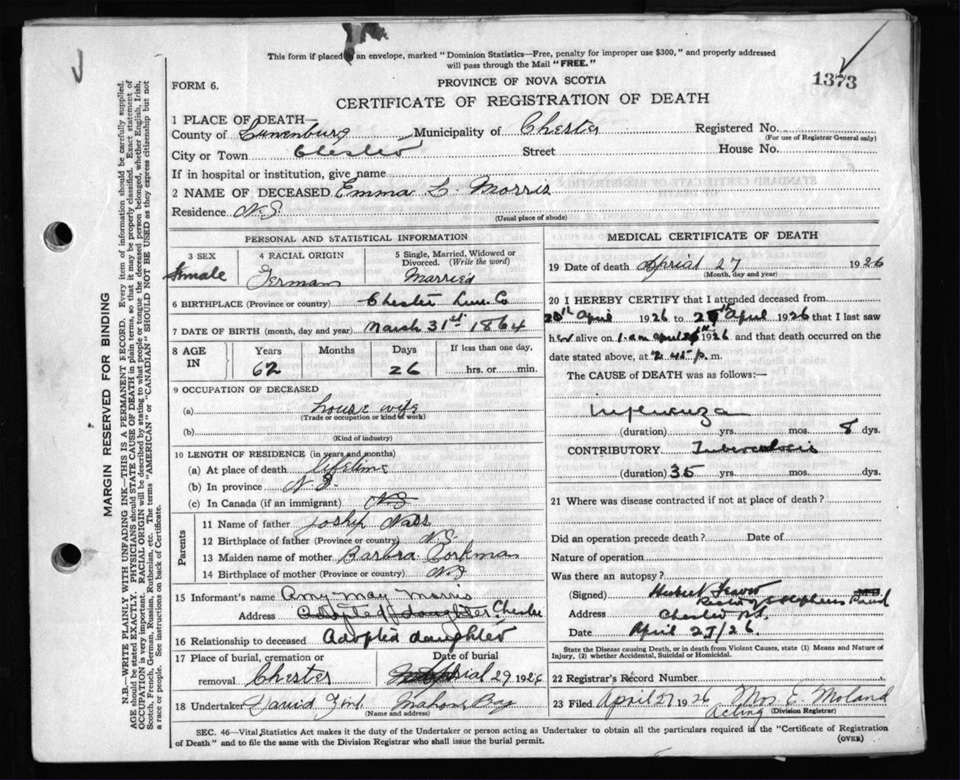 This form if placed in an envelope, marked "Dominion Statistics—Free, penalty for improper use $300," and properly addressed
will pass through the Mail "FREE."
FORM 6.
PROVINCE OF NOVA SCOTIA
1373
CERTIFICATE OF REGISTRATION OF DEATH
1 PLACE OF DEATH—
County of Lunenburg Municipality of Chester Registered No.
(For use of Registrar General only)
City or Town Chester Street House No.
If in hospital or institution, give name
2 NAME OF DECEASED Emma L. Morris
Residence N.S.
(Usual place of abode)
PERSONAL AND STATISTICAL INFORMATION
3 SEX 4 RACIAL ORIGIN 5 Single, Married, Widowed or Divorced. (Write the word)
Female German Married
6 BIRTHPLACE (Province or country) Chester Lun. Co
7 DATE OF BIRTH (month, day and year) March 31st 1864
8 AGE IN Years Months Days If less than one day,
62 26 hrs. or min.
9 OCCUPATION OF DECEASED
(a) house wife
(Trade or occupation or kind of work)
(b)
(Kind of industry)
10 LENGTH OF RESIDENCE (in years and months)
(a) At place of death lifetime
(b) In province N.S.
(c) In Canada (if an immigrant) N.S
Parents
11 Name of father Joship Nass
12 Birthplace of father (Province or country) N.S.
13 Maiden name of mother Barbra Corkman
14 Birthplace of mother (Province or country) N.S
15 Informant's name Amy May Morris
Address Adopted daughter Chester
16 Relationship to deceased Adopted daughter
17 Place of burial, cremation or removal Chester Date of burial April 29 1926
18 Undertaker David Mahone Bay
(Name and address)
MEDICAL CERTIFICATE OF DEATH
19 Date of death April 27 1926
(Month, day and year)
20 I HEREBY CERTIFY that I attended deceased from
20th April 1926 to 27th April 1926 that I last saw
her alive on 1 a.m April 1926 and that death occurred on the
date stated above, at 2.45 p. m.
The CAUSE of DEATH was as follows:—
Influenza
(duration) yrs. mos. 8 dys.
CONTRIBUTORY Tuberculosis
(duration) 35 yrs. mos. dys.
21 Where was disease contracted if not at place of death?
Did an operation precede death? Date of
Nature of operation
Was there an autopsy?
(Signed) Hubert M.D.
Rector of St Stephens
Address Chester N.S.
Date April 27/26.
State the Disease causing Death, or in death from Violent Causes, state (1) Means and Nature of
Injury, (2) whether Accidental, Suicidal or Homicidal.
22 Registrar's Record Number
23 Filed April 27 1926 Mrs E. Moland
Acting (Division Registrar)
SEC. 46—Vital Statistics Act makes it the duty of the Undertaker or person acting as Undertaker to obtain all the particulars required in the "Certificate of Registration
of Death" and to file the same with the Division Registrar who shall issue the burial permit.
(OVER)
MARGIN RESERVED FOR BINDING
N.B.—WRITE PLAINLY WITH UNFADING INK—THIS IS A PERMANENT RECORD. Every item of information should be carefully supplied.
AGE should be stated EXACTLY. PHYSICIANS should STATE CAUSE OF DEATH in plain terms, so that it may be properly classified. Exact statement of
OCCUPATION is very important. RACIAL ORIGIN will be described by stating to what people or tongue the deceased person belonged, whether English, Irish,
Scotch, French, German, Russian, Ruthenian, etc. The terms "AMERICAN" or "CANADIAN" SHOULD NOT BE USED as they express citizenship but not
a race or people. See instructions on back of Certificate.